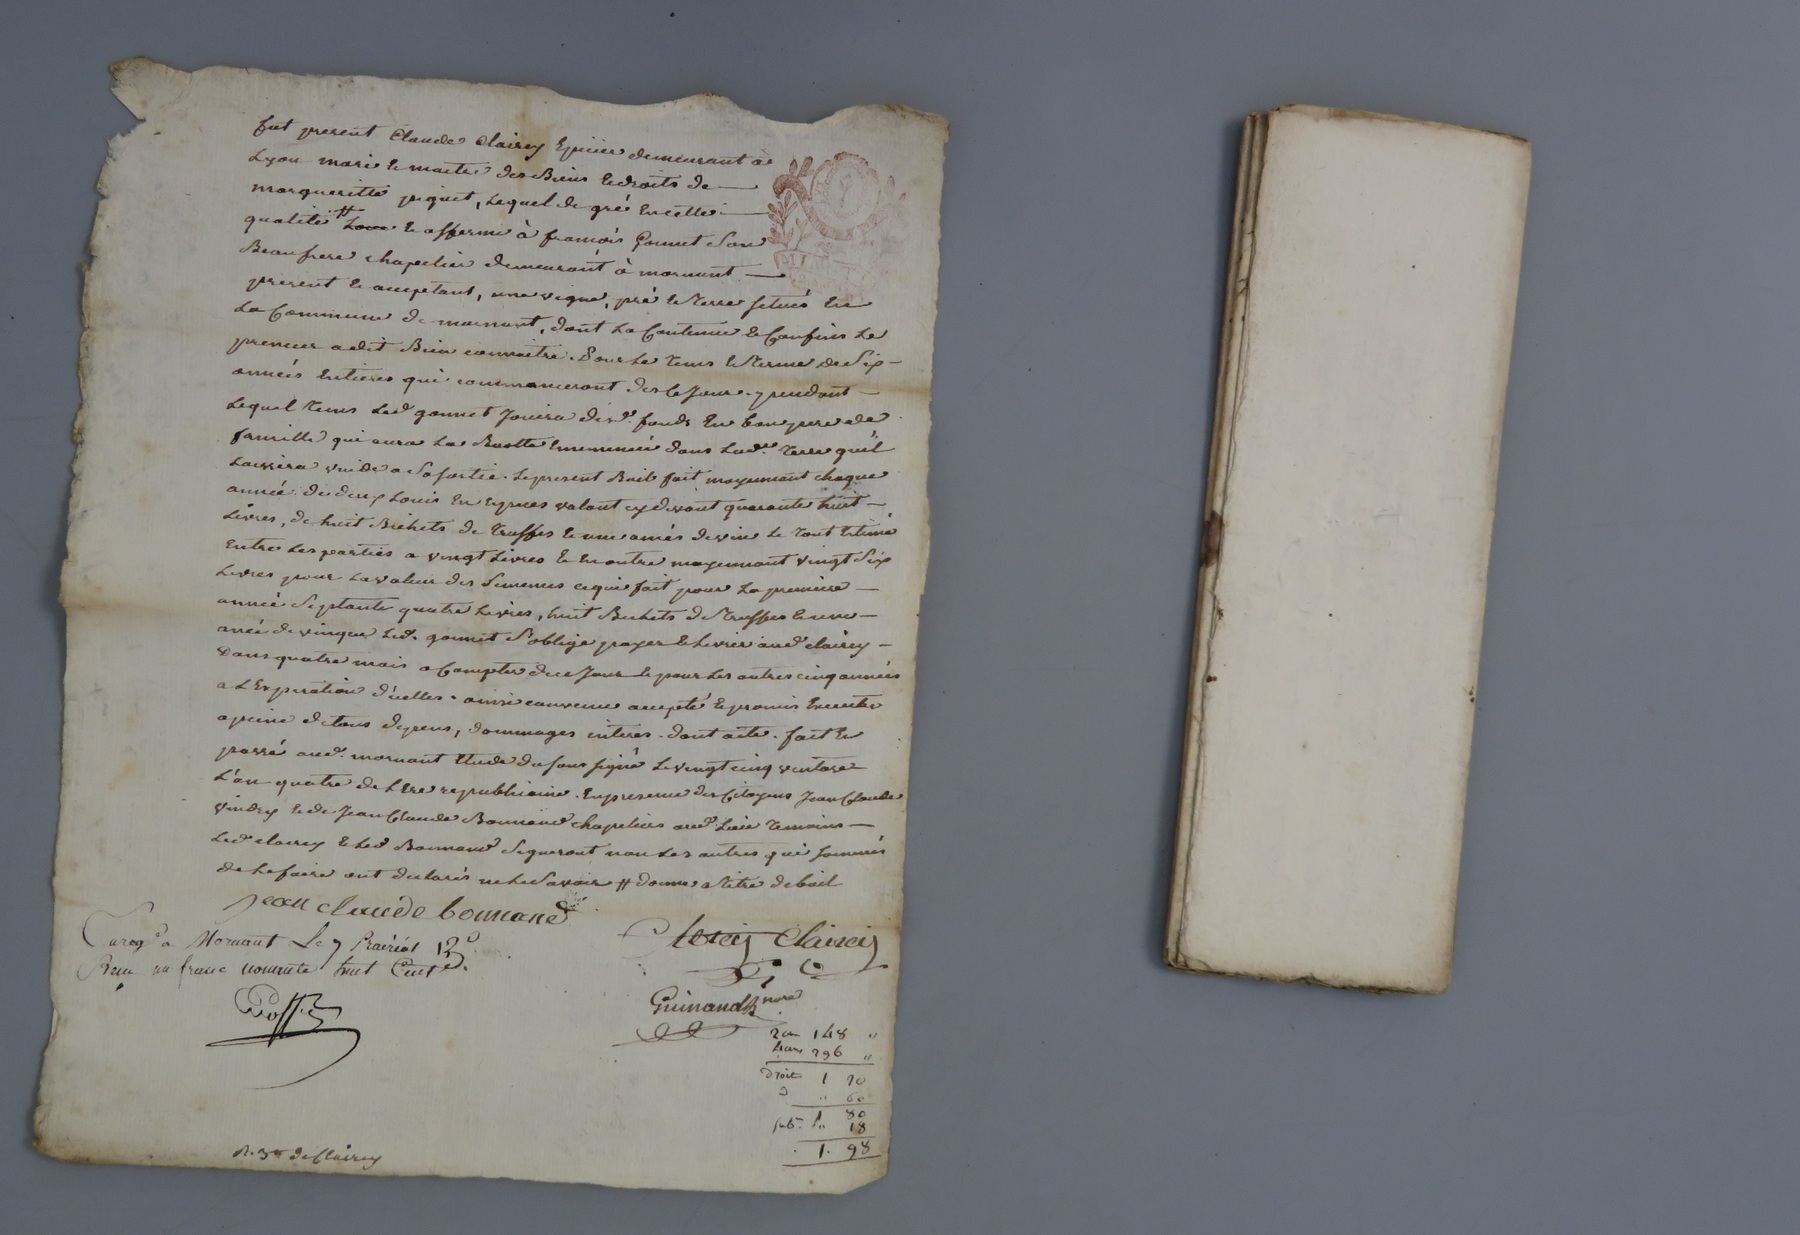 fut present Claude Clairey Epicier demeurant à
Lyon mari & maitre des Biens & droits de
margueritte piguet, Lequel de gré en cette
qualité # Loue & afferme à francois Gonnet Son
Beaufrere chapelier demeurant à mornant
present & acceptant, une vigne, pré & terre situés en
La Commune de mornant, dont La Contenue & Confins Le
preneur a dit Bien connoitre. Pour Le tems & terme de Six
années Entieres qui commanceront des ce Jour. pendant
Lequel tems Led. gonnet Jouira desd. fonds En bon pere de
famille qui aura La Em dans Lad. terre qu'il
Laissera vuide a Sa sortie. Le present Bail fait moyennant chaque
année de deux Louis En Espèces valant cy devant quarante huit
Livres, de huit Bichets de truffes & une anée de vin Le tout Estimé
Entre Les parties a vingt Livres & En outre moyennant vingt Six
Livres pour La valeur des Semences ce qui fait pour La premiere
année Septante quatre Livres, huit Bichets de truffes & une
anée de vin que Led. gonnet S'oblige payer & Livrer aud. clairey
Dans quatre mois a Compter de ce Jour & pour Les autres cinq années
a L'Expiration d'icelles. ainsi convenu accepté & promis Executer
a peine de tous depens, dommages interes. dont acte. fait &
passé aud. mornant Etude du Sous signé Le vingt cinq ventose
L'an quatre de L'Ere republicaine. En presence des Citoyens Jean Claude
vindry & de Jean Claude Bonnand chapeliers aud. Lieu temoins
Led. clairey & Led. Bonnand Signeront non Les autres qui Sommés
de Le faire ont declarés ne Le Savoir # donne a titre de bail
jean claude bonnand
Enreg. a Mornant Le 7 Prairial
Reçu un franc nonante huit Cent.
Clairey
Guinand nore
2 an 148 "
4 ans 296 "
Droit 1 20
" 60
1. 80
18
1. 98
de Clairey